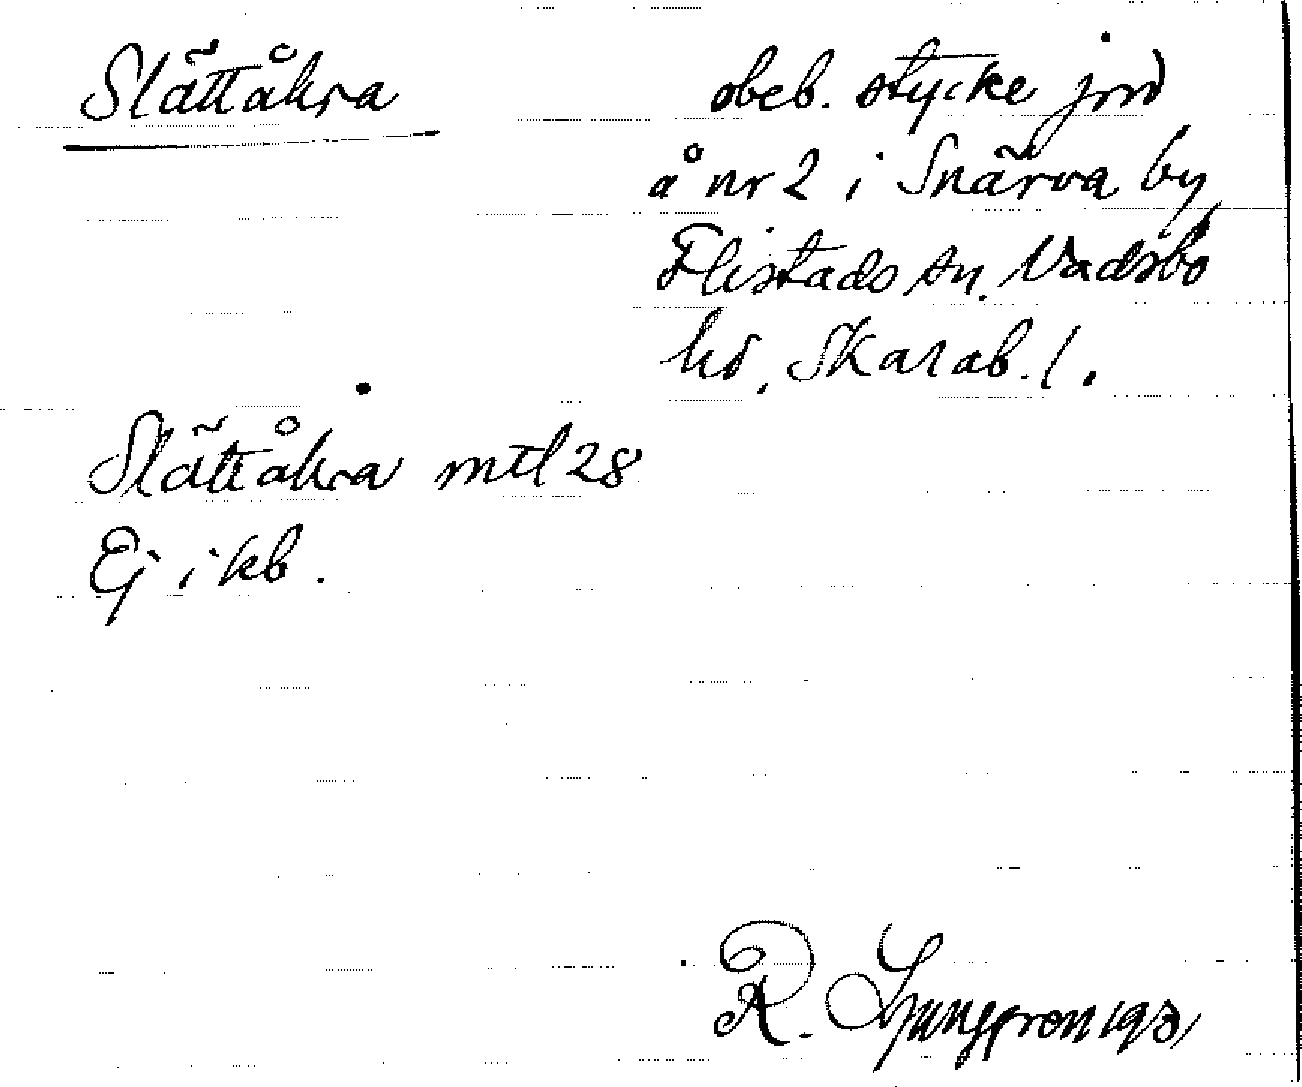 Slättåkra
obeb. stycke jord
å nr 2 i Snärva by
Flistads sn. Vadsbo
hd, Skarab. l.
Slättåkra mtl 28
Ej i kb.
R. Ljunggren